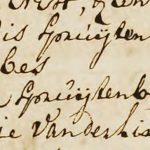 is Spruijten
bes
Spruijtenb
ie Vanderlis